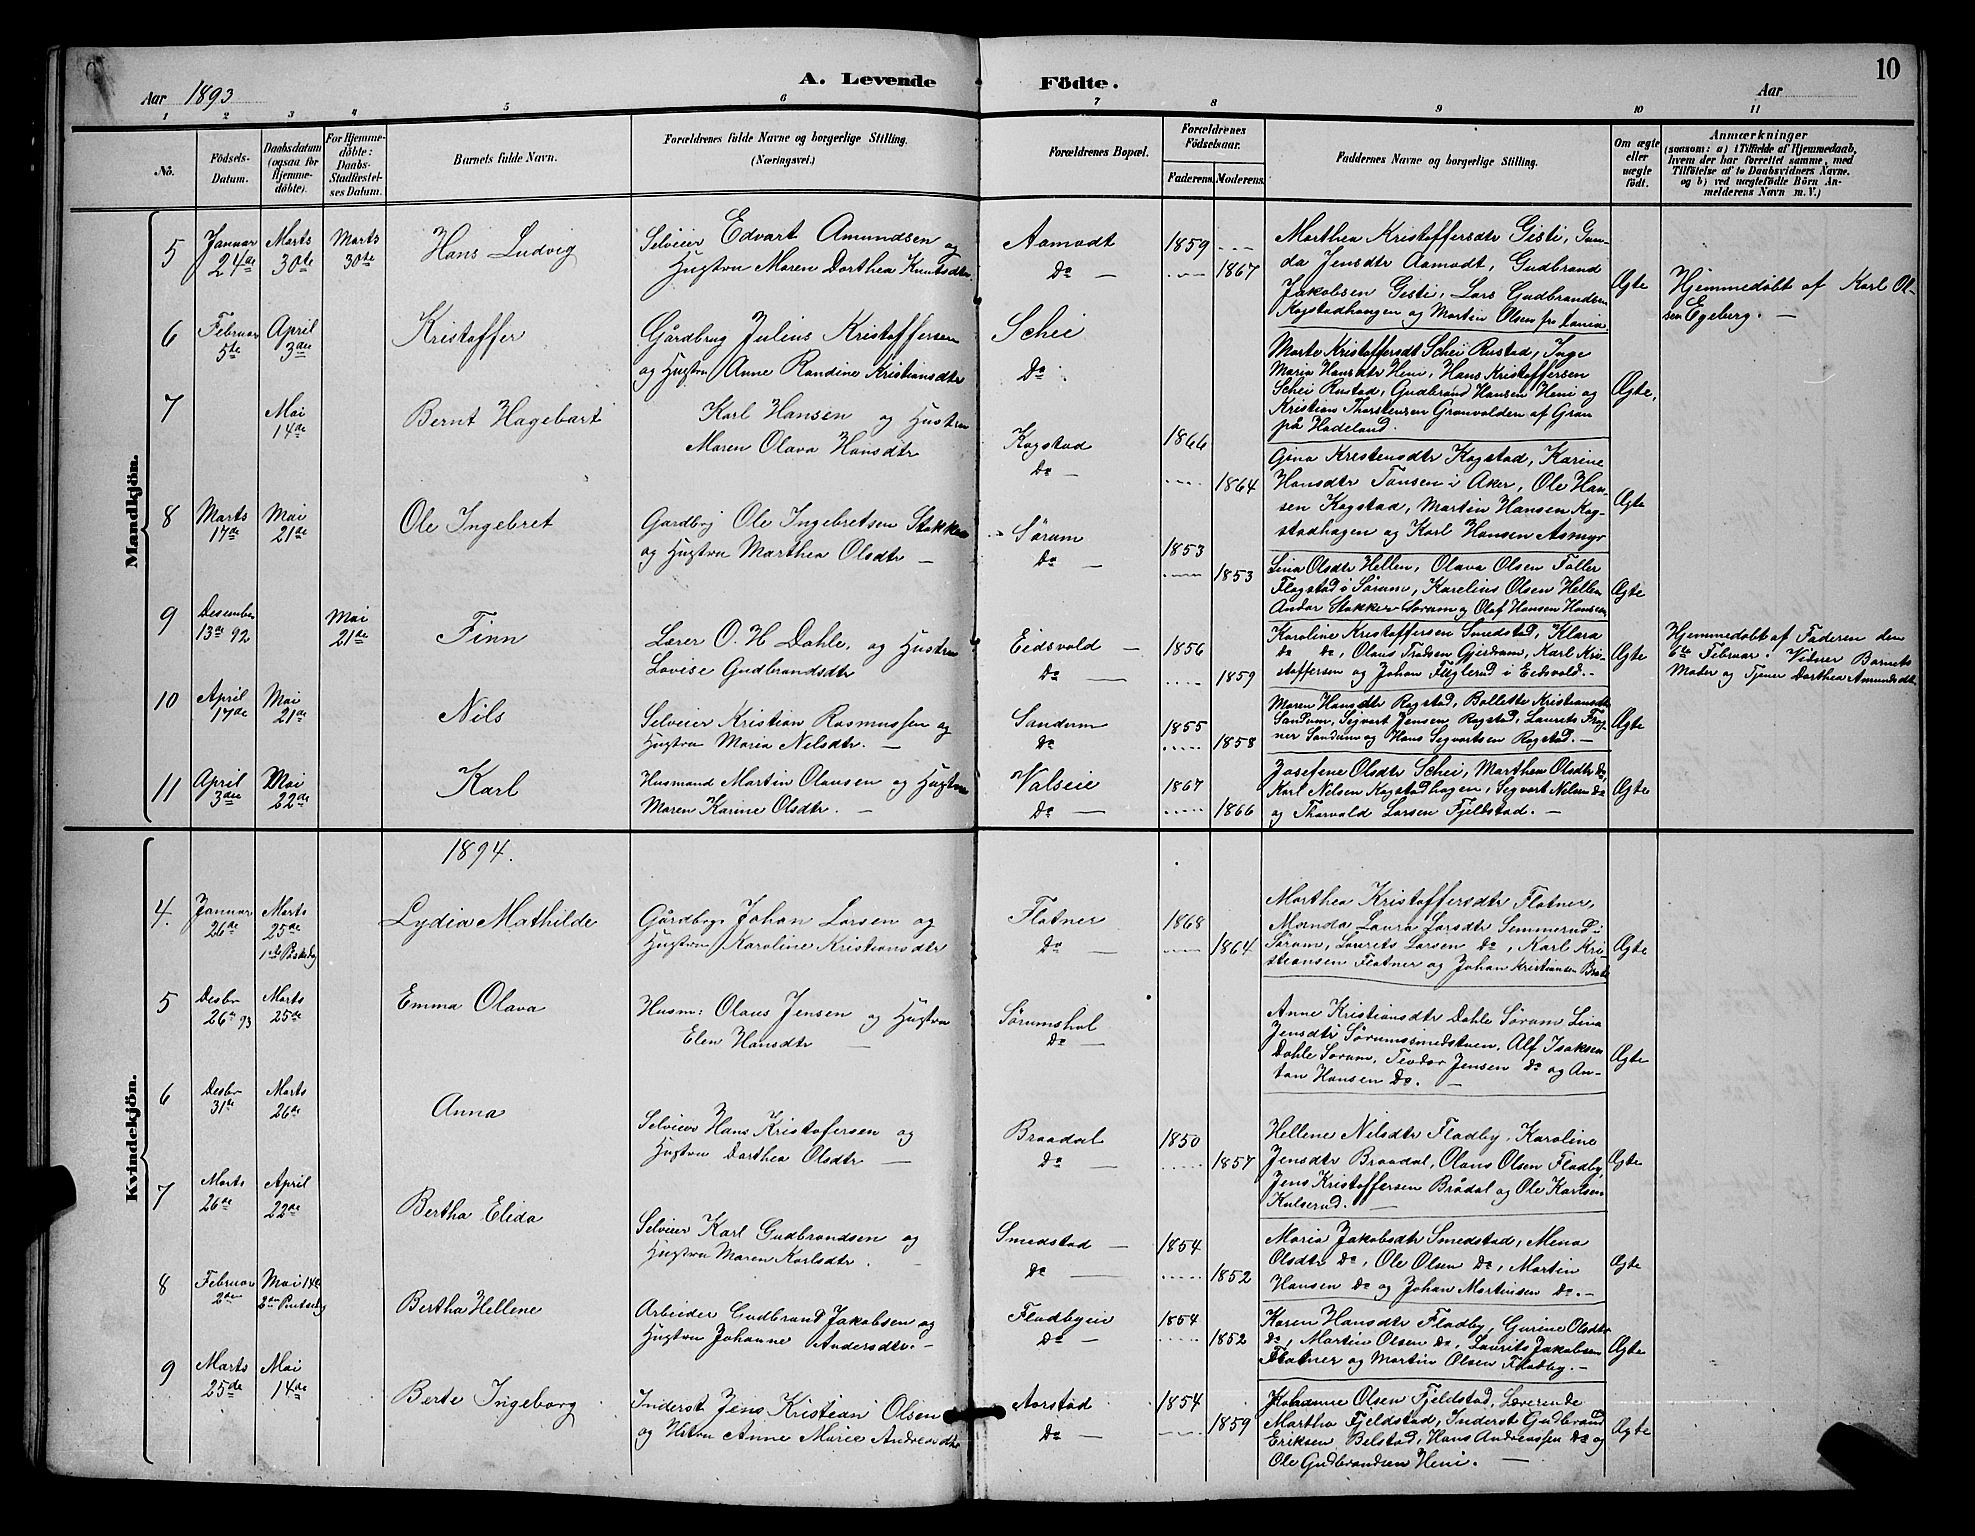 A. Levende Födte.
10
Aar 1893
Aar
1 2 3 4 5 6 7 8 9 10 11
No.
Födsels-
Datum.
Daabsdatum
(ogsaa for
Hjemme-
döbte).
For Hjemme-
döbte:
Daabs-
Stadfæstel-
ses Datum.
Barnets fulde Navn.
Forældrenes fulde Navne og borgerlige Stilling.
(Næringsvei.)
Forældrenes Bopæl.
Forældrenes
Födselsaar.
Faderens. Moderens.
Faddernes Navne og borgerlige Stilling.
Om ægte
eller
uægte
födt.
Anmærkninger
(saasom: a) i Tilfælde af Hjemmedaab,
hvem der har forrettet samme, med
Tilföielse af to Daabsvidners Navne.
og b) ved uægtefödte Börn An-
melderens Navn m. V.)
Mandkjön.
5
Januar
24de
Marts
30te
Marts
30te
Hans Ludvig
Selveier Edvart Amundsen og
Hustru Maren Dorthea Knutsdtr
Aamodt
Do —
1859
1867
Marthea Kristoffersdtr Gisti, Gun-
da Jensdtr Aamodt, Gudbrand
Jakobsen Gisti, Lars Gudbrandsen
Kogstadhangen og Martin Olsen fra
Ægte
Hjemmedøbt af Karl Ol-
sen Egeberg. —
6
Februar
5te
April
3die
Kristoffer
Gårdbrug Julius Kristoffersen
og Hustru Anne Randine Kristiansdtr
Schei
Do
Marte Kristoffersdt Schei Rustad, Inge
Maria Hansdtr Heni, Hans Kristoffersen
Schei Rustad, Gudbrand Hansen Heni og
Kristian Thorstensen Granvolden af Gran
på Hadeland.
Ægte,
7
Mai
14de
Bernt Hagebart
Karl Hansen og Hustru
Maren Olava Hansdtr
Kogstad
Do —
1866
1864
Gina Kristensdtr Kogstad, Karine
Hansdtr Tansen i Aker, Ole Han-
sen Kogstad, Martin Hansen Kog-
stadhagen og Karl Hansen Asmyr
Ægte
8
Marts
17de
Mai
21de
Ole Ingebret
Gardbrj Ole Ingebretsen Stakker
og Hustru Marthea Olsdtr —
Sørum
Do —
1853
1853
Lina Olsdtr Hellen, Olava Olsen Faller
Flagstad i Sørum, Karelius Olsen Hellen
Andor Stakker Sørum og Olaf Hansen Hansen
Ægte
9
Desember
13de 92
Mai
21de
Finn
Lærer O. H Dahle, og Hustru
Lovise Gudbrandsdtr
Eidsvold —
Do —
1856
1859
Karoline Kristoffersen Smedstad, Klara
Do Do, Olaus Gjerdrum, Karl Kri-
stoffersen og Johan i Eidsvold. —
Ægte
Hjemmedøbt af Faderen den
6te Februar. Vidner Barnets
Moder og Tjener Dorthea Amundsdt
10
April
17de
Mai
21de
Nils
Selveier Kristian Rasmussen og
Hustru Maria Nilsdtr. —
Sandum
Do
1855
1858
Maren Hansdtr Rogstad, Bollette Kristiansdtr
Sandum, Segvert Jensen Rogstad, Laurets
Sandum og Hans Segvartsen Rogstad. —
Ægte
11
April
3die
Mai
22de
Karl
Husmand Martin Olausen og Hustru
Maren Karine Olsdtr. —
Valseie
Do —
1867
1866
Josefine Olsdtr Schei, Marthea Olsdtr Do,
Karl Nelsen Kogstadhagen, Segvart Nilsen Do
og Thorvald Larsen Fjeldstad. —
Ægte
Kvindekjön.
1894.
4.
Januar
26de
Marts
25de
1ste Påskedg
Lydia Mathilde
Gårdbrgr Johan Larsen og
Hustru Karoline Kristiansdtr
Flatner
Do —
1868
1864
Marthea Kristoffersdtr Flatner,
Manda Laura Larsdtr Semmerud i
Sørum, Laurets Larsen Do, Karl Kri-
stiansen Flatner og Johan Kristiansen
Ægte
5
Desbr
26de 93
Marts
25de
Emma Olava
Husm: Olaus Jensen og Hustru
Elen Hansdtr —
Sørumshol
Do —
Anne Kristiansdtr Dahle Sørum Lina
Jensdtr Sørumssmedstuen, Alf Isaksen
Dahle Sørum, Teodor Jensen Do og An-
ton Hansen Do. —
Ægte
6
Desbr
31de
Marts
26de
Anna
Selveier Hans Kristofersen og
Hustru Dorthea Olsdtr —
Braadal
Do —
1850
1857
Hellene Nilsdtr Fladby, Karoline
Jensdtr Braadal, Olaus Olsen Fladby,
Jens Kristoffersen Brådal og Ole Karlsen
Kulserud. —
Ægte
7
Marts
26de
April
22de
Bertha Elida
Selveier Karl Gudbrandsen og
Hustru Maren Karlsdtr. —
Smedstad —
Do —
1854
1852
Maria Jakobsdtr Smedstad, Mena
Olsdtr Do, Ole Olsen Do, Martin
Hansen Do og Johan Martinsen Do. —
Ægte
8
Februar
2den
Mai 14de
2den Pintsedg
Bertha Hellene
Arbeider Gudbrand Jakobsen og
Hustru Johanne Andersdtr. —
Fladbyeie
Do —
1854
1852
Karen Hansdtr Fladby, Gurine Olsdtr
Do, Martin Olsen Do, Laurits Jakobsen
Flatner og Martin Olsen Fladby. —
Ægte
9
Marts
25de
Mai
14de
Berte Ingeborg
Inderst Jens Kristian Olsen
og Hstru Anne Marie Andreasdtr
Aarstad
Do —
1854
1859
Johanne Olsen Fjeldstad, Læverende
Martha Fjeldstad, Inderst Gudbrand
Eriksen Belstad, Hans Andreassen Do og
Ole Gudbrandsen Heni. —
Ægte